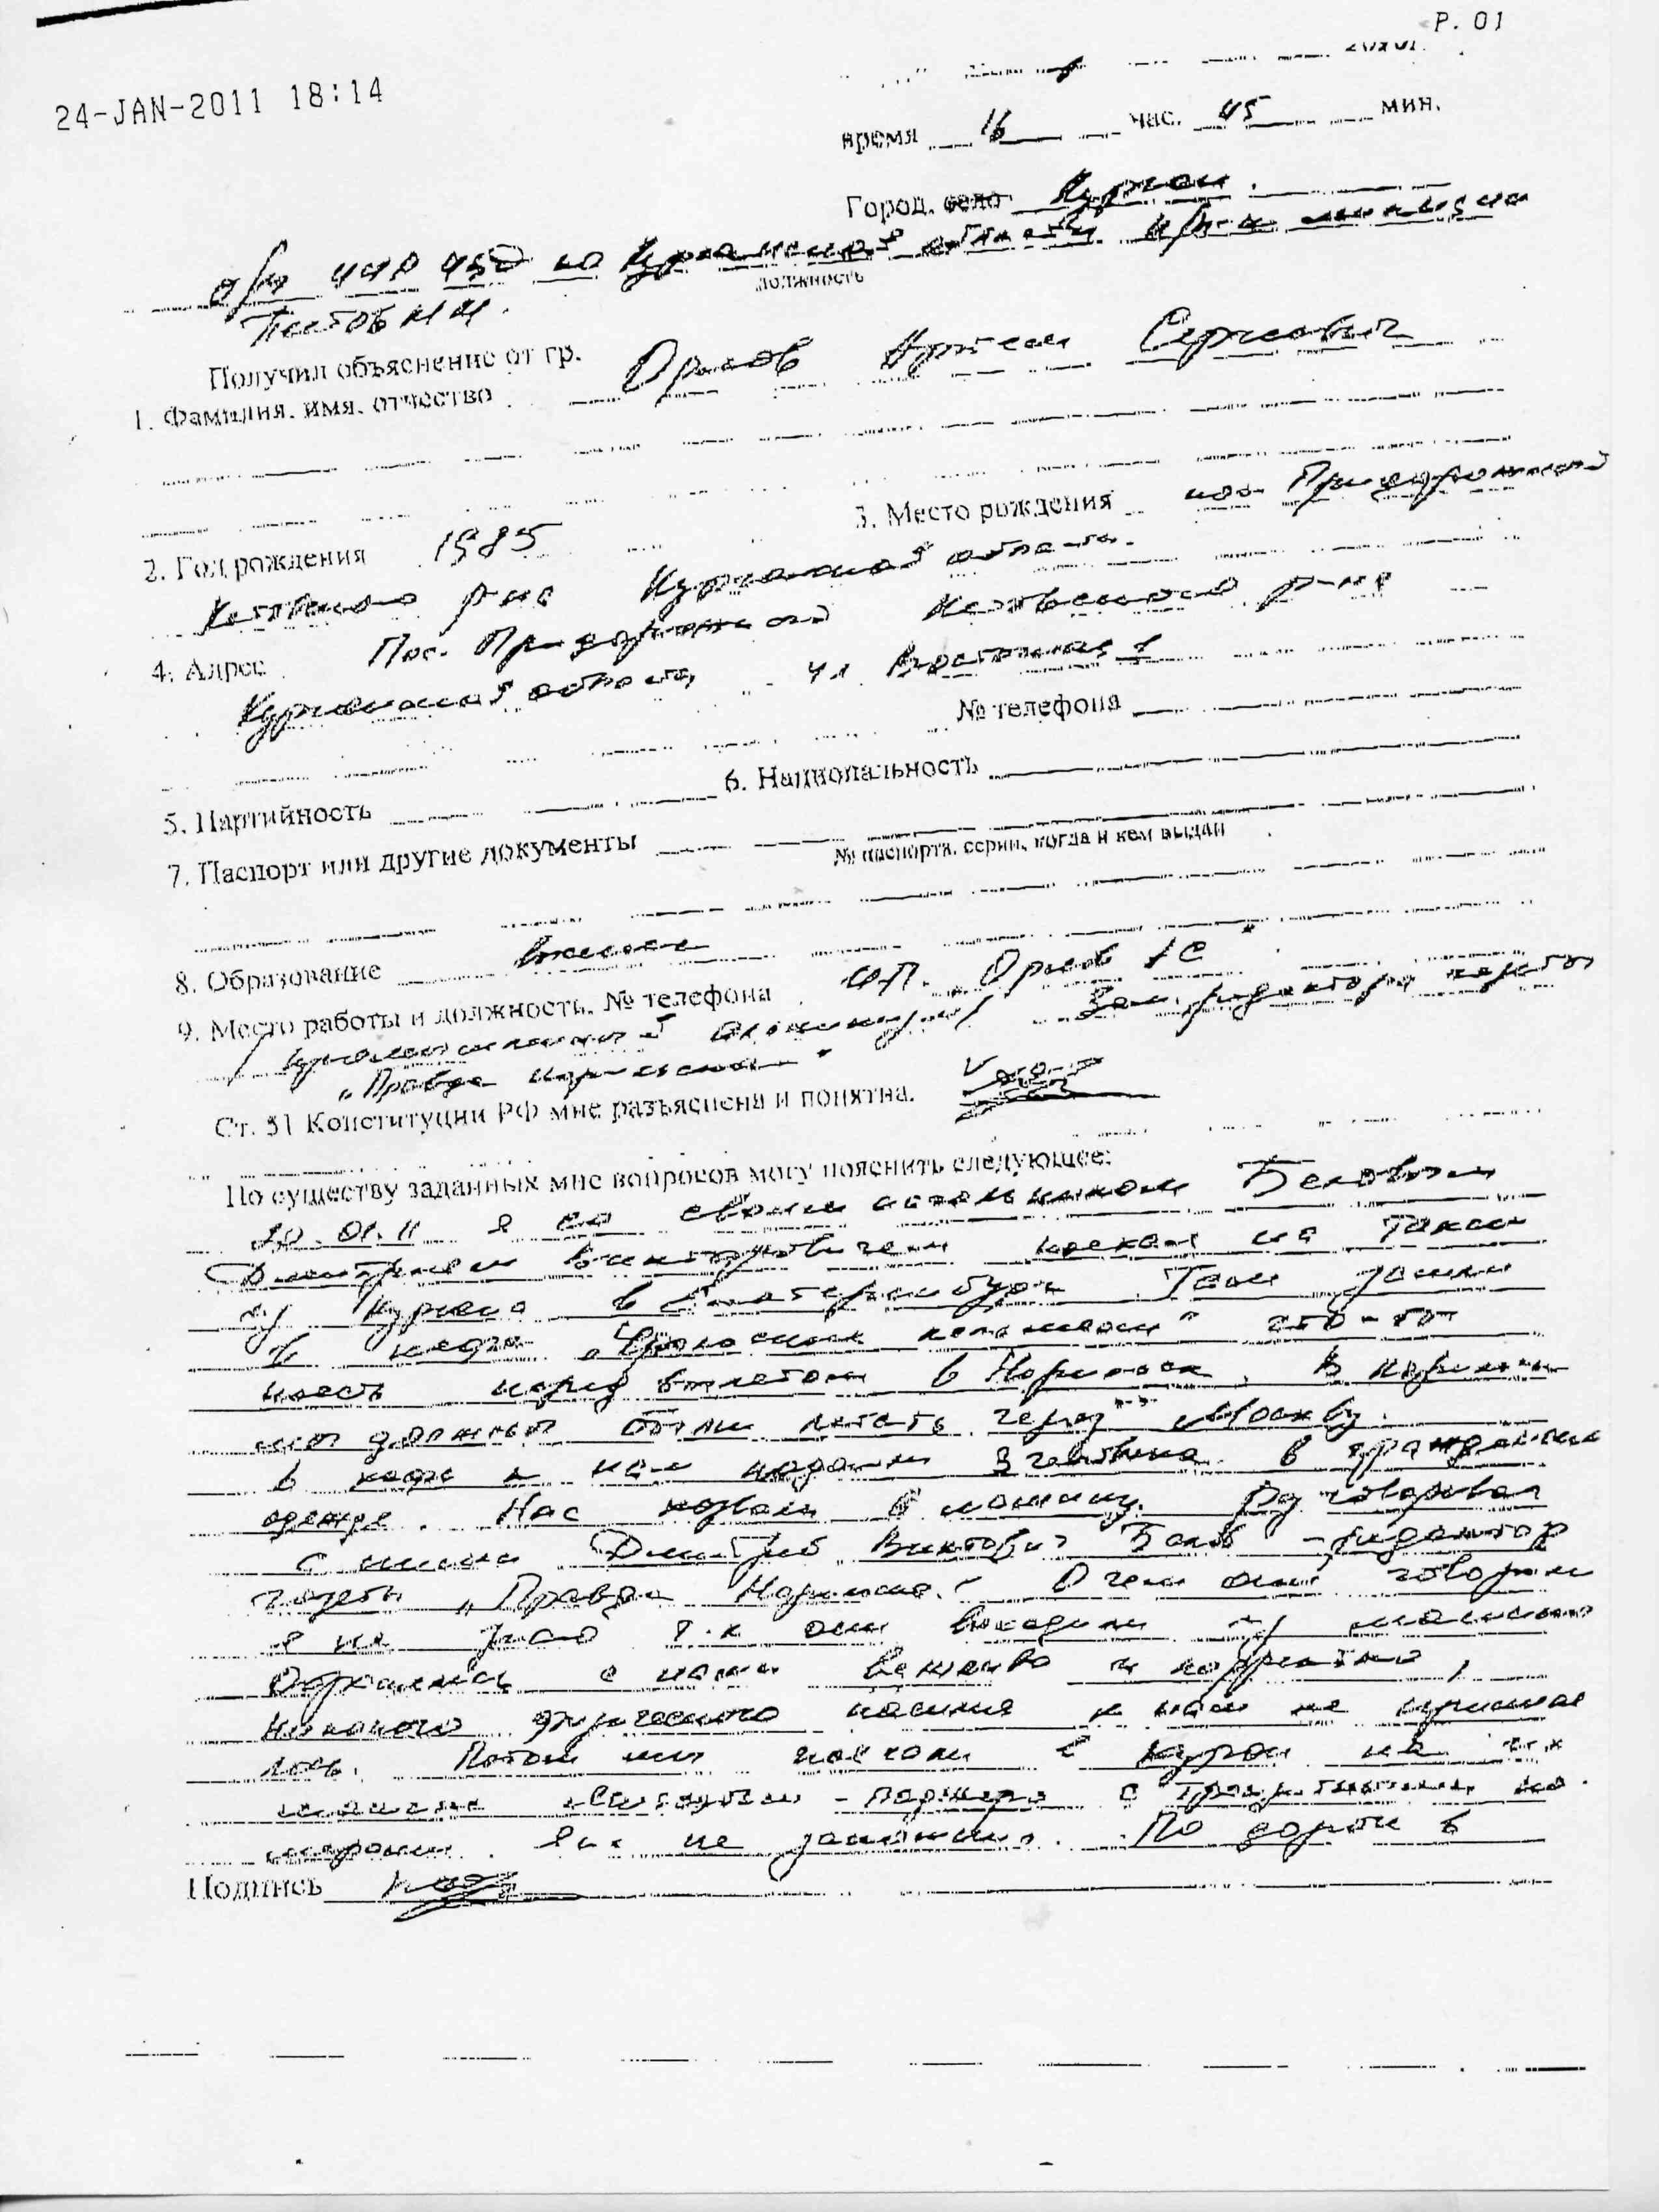 P. 01
24-JAN-2011 18:14
время 16 час. 45 мин.
Город, село Курган.
о/у УУР УВД по Курганской области м-к милиции
должность
Титов
Получил объяснение от гр.
1. Фамилия, имя, отчество Орлов Артем Сергеевич
2. Год рождения 1985 3. Место рождения пос. Придорожный
Кетовского р-на Курганской области.
4. Адрес Пос. Придорожный Кетовского р-на
Курганской области ул Восточная 1
№ телефона
5. Партийность 6. Национальность
7. Паспорт или другие документы
№ паспорта, серии, когда и кем выдан
8. Образование высшее
9. Место работы и должность, № телефона ИП. „Орлов АС"
Зам. редактора газеты
„Правда
Ст. 51 Конституции РФ мне разъяснена и понятна.
По существу заданных мне вопросов могу пояснить следующее:
20.01.11 я со своим Беловым
Дмитрием Викторовичем поехал на такси
из Кургана в Екатеринбург Там зашли
в кафе что-бы
поесть перед вылетом в Норильск. В Норильск
мы должны были лететь через Москву.
в кафе к нам подошли 3 человека в гражданской
одежде. Нас позвали в машину. Разговаривал
с ними Дмитрий Викторович Белов - редактор
газеты „Правда О чем они говорили
я не знаю т.к они выходили из машины
Обращались с нами вежливо и корректно,
никакого физического насилия к нам не применя
лось. Потом мы поехали в Курган на их
номерами. Я их не запомнил. По дороге в
Подпись